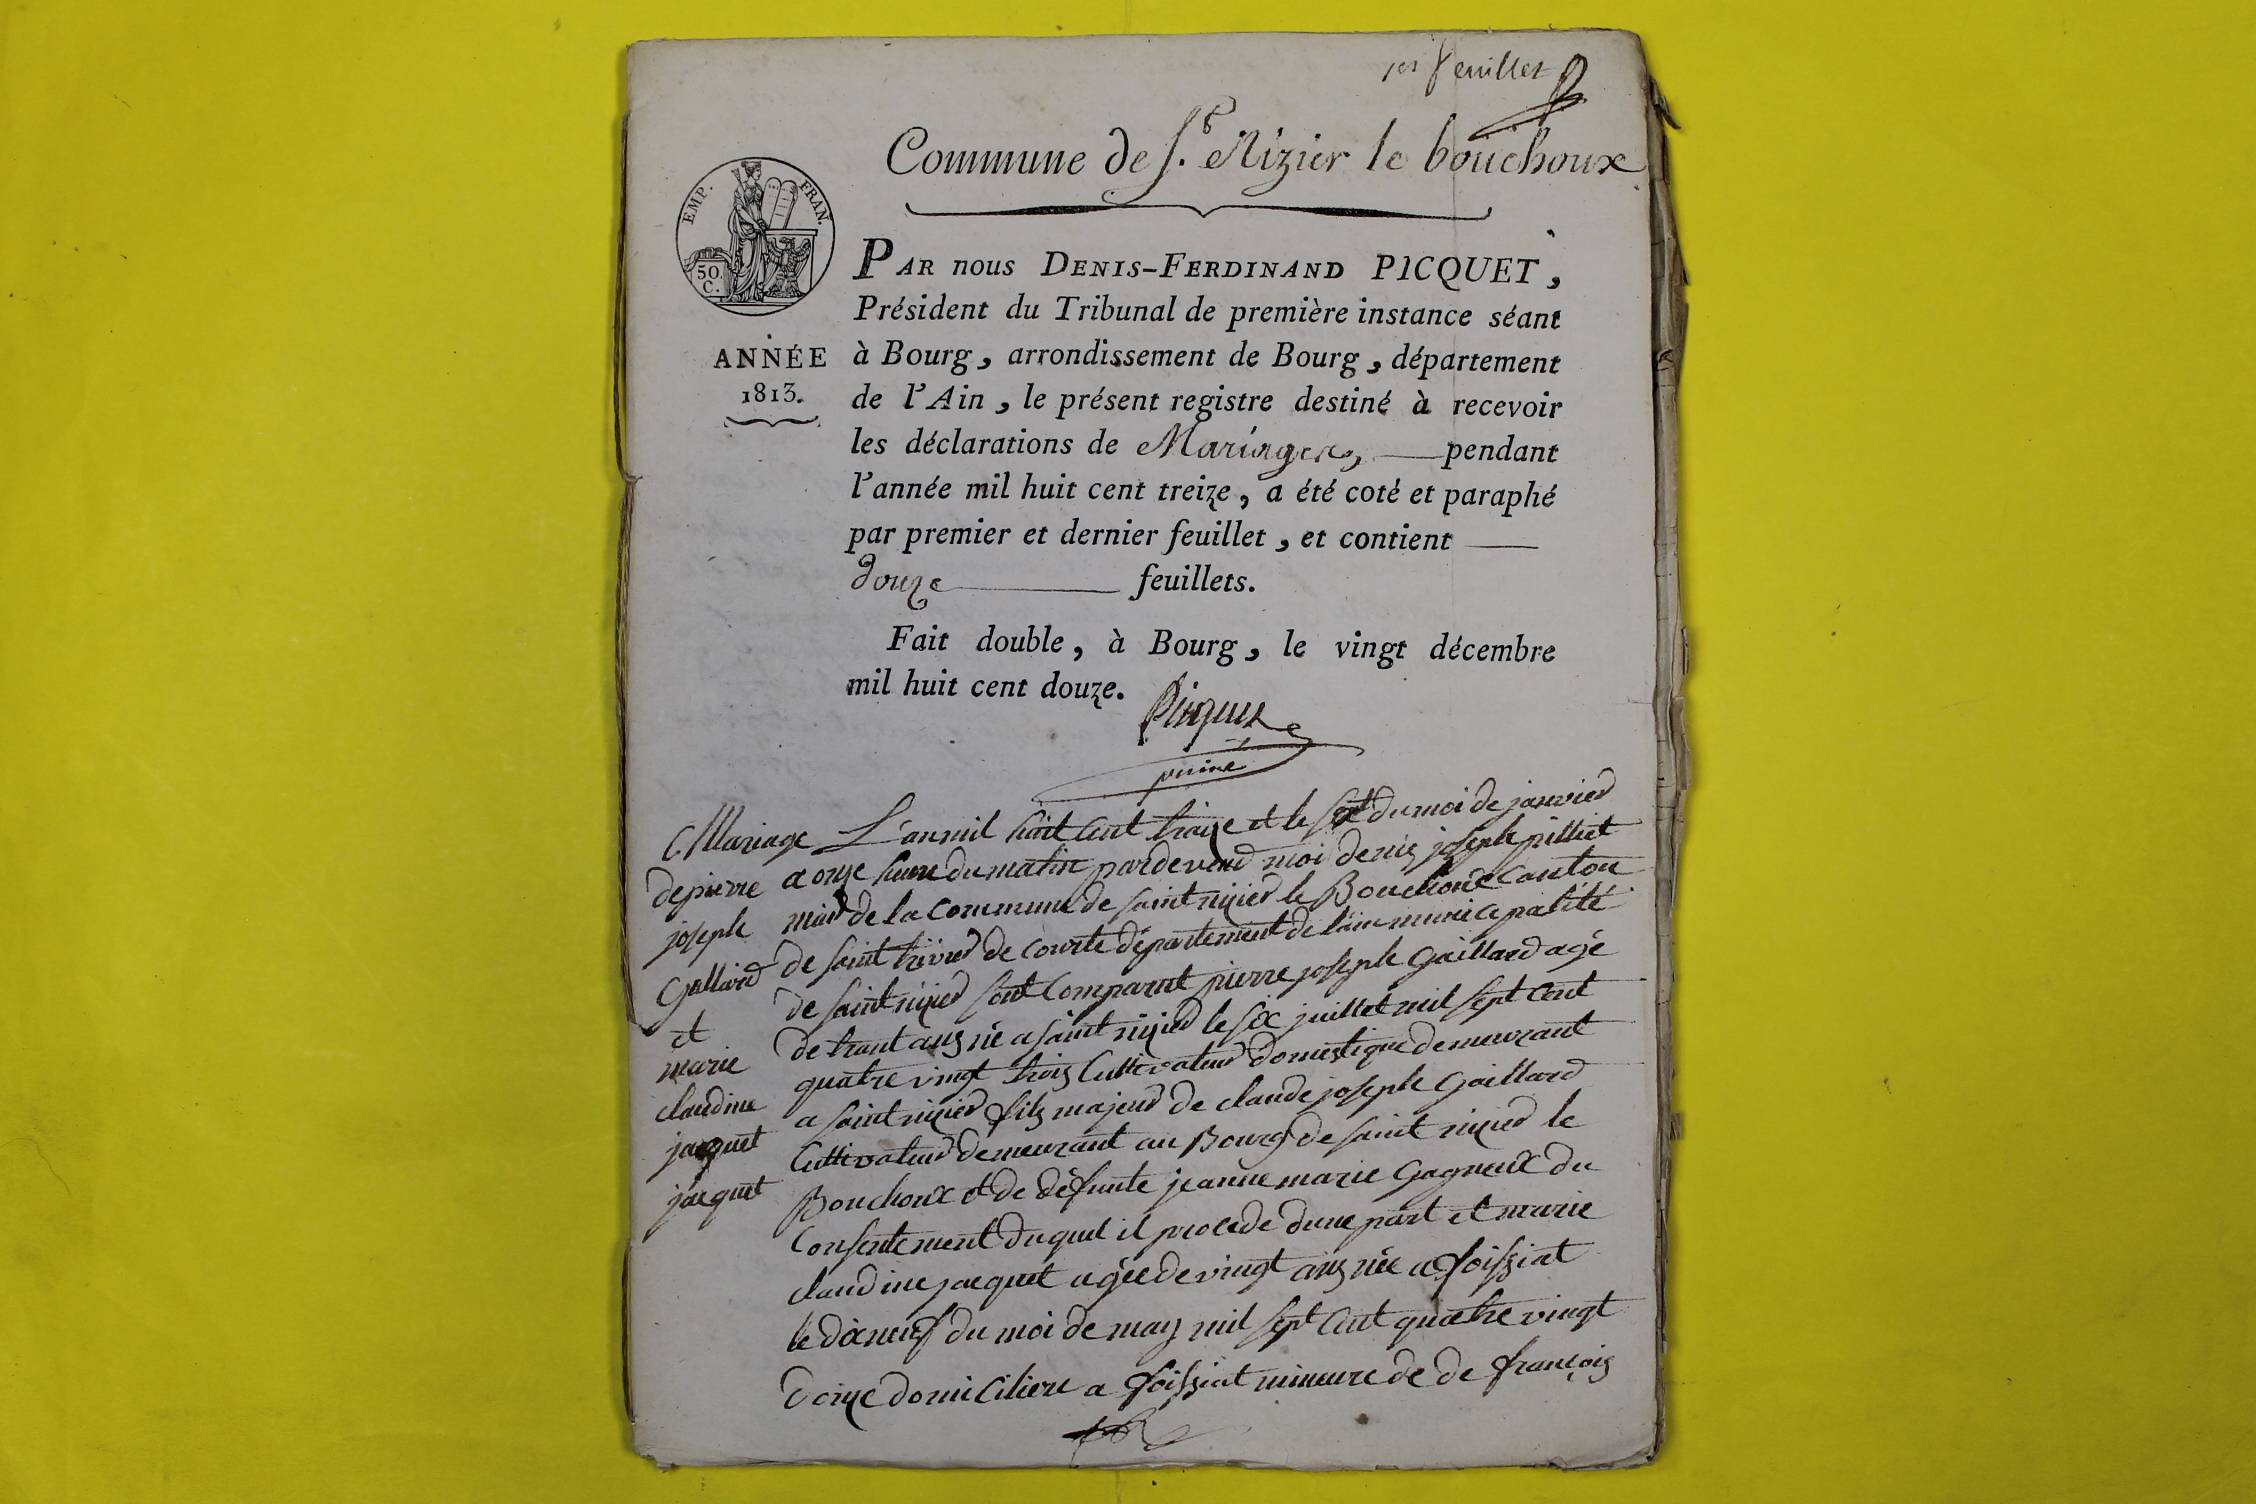 1er feuillet
Commune de St. Nizier le bouchoux
EMP. FRAN.
50. C.
ANNÉE
1813.
PAR nous DENIS-FERDINAND PICQUET,
Président du Tribunal de première instance séant
à Bourg, arrondissement de Bourg, département
de l'Ain, le présent registre destiné à recevoir
les déclarations de Mariages, pendant
l'année mil huit cent treize, a été coté et paraphé
par premier et dernier feuillet, et contient
douze feuillets.
Fait double, à Bourg, le vingt décembre
mil huit cent douze.
Picquet
Mariage
de pierre
joseph
Gallard
et
marie
claudine
jacquet
jacquet
L'an mil huit cent traize et le sept du moi de janvier
a onze heure du matin pardevend moi denis joseph pilliet
maire de la commune de saint nizier le Bouchoux canton
de saint trivier de courte département de l'ain municipalité
de saint nizier sont comparut pierre joseph Gaillard agé
de trant ans né a saint nizier le six juillet mil sept cent
quatre vingt trois Cultivateur domestique demeurant
a saint nizier fils majeur de claude joseph Gaillard
Cultivateur demeurant au Bourg de saint nizier le
Bouchoux et de défunte jeanne marie Gagneux du
Consentement duquel il procede dune part et marie
claudine jacquet agée de vingt ans née a foissiat
le dixneuf du moi de may mil sept cent quatre vingt
donze domiciliere a foissiat mineure de de françois